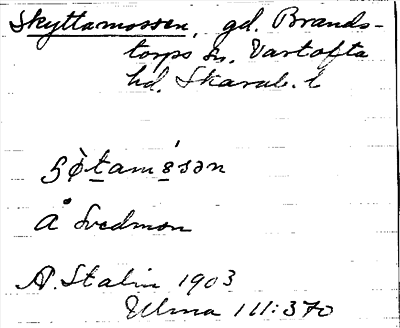 Skyttamossen, gd. Brands-
torps sn. Vartofta
hd. Skarab. l
å Svedmon
A. Stalin 1903
Ulma 111:370